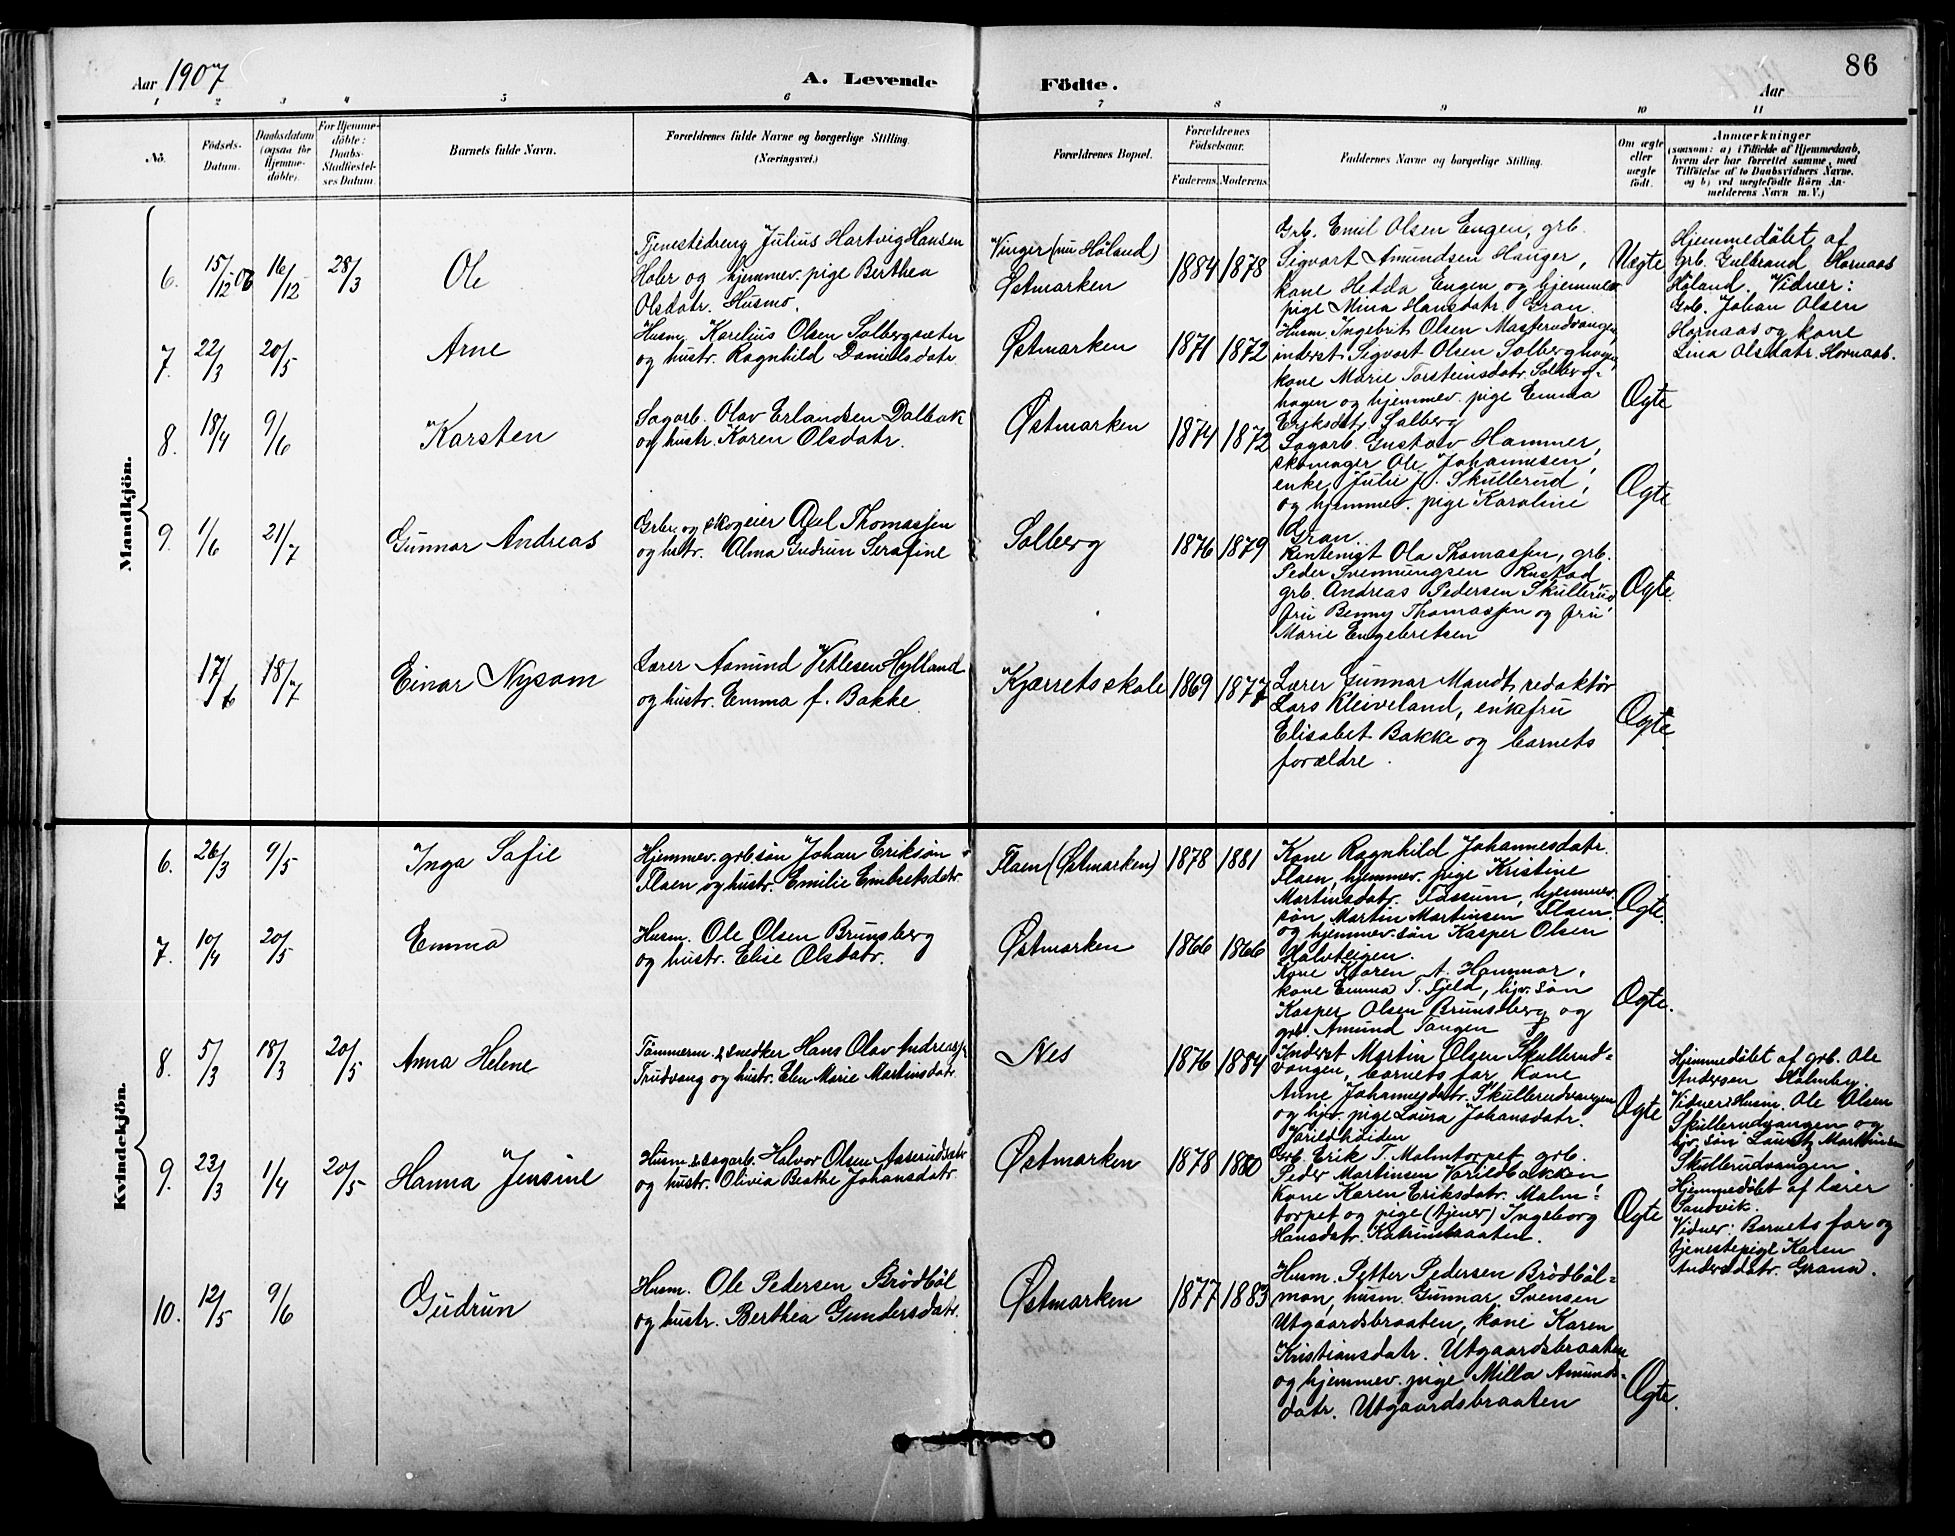 86
Aar 1907
A. Levende Födte.
Aar
1 2 3 4 5 6 7 8 9 10 11
No.
Födsels-
Datum.
Daabsdatum
(ogsaa for
Hjemme-
döbte).
For Hjemme-
döbte:
Daabs-
Stadfæstel-
ses Datum.
Barnets fulde Navn.
Forældrenes fulde Navne og borgerlige Stilling.
(Næringsvei.)
Forældrenes Bopæl.
Forældrenes
Födselsaar.
Faderens. Moderens.
Faddernes Navne og borgerlige Stilling.
Om ægte
eller
uægte
födt.
Anmærkninger
(saasom: a) i Tilfælde af Hjemmedaab,
hvem der har forrettet samme, med
Tilföielse af to Daabsvidners Navne.
og b) ved uægtefödte Börn An-
melderens Navn m. V.)
Mandkjön.
6. 15/12 06 16/12 28/3 Ole
Tjenestedreng Julius Hartvig Hansen
Holer og hjemmev. pige Berthea
Olsdatr. Husmo.
Vinger (nu Höland)
Østmarken
1884 1878
Grb. Emil Olsen Engen, grb.
Sigvart Amundsen Hauger,
kone Hedda Engen og hjemmev.
pige Mina Hansdatr. Gran.
Uægte
Hjemmedöbt af
Grb. Gulbrand Hornaas
Höland. Vidner:
Grb. Johan Olsen
Hornaas og kone
Lina Olsdatr. Hornaas.
7. 22/3 20/5 Arne
Husm. Karelius Olsen Solbergsæter
og hustr. Ragnhild Danielsdatr.
Østmarken
1871 1872
Husm. Ingebrit Olsen Masterudvangen,
inderst Sigvart Olsen Solberghagen,
kone Marie Torsteinsdatr. Solberg-
hagen og hjemmev. pige Emma
Eriksdatr. Solberg
Ægte
8. 18/4 9/6 Karsten
Sagarb. Olav Erlandsen Dalbak
og hustr. Karen Olsdatr.
Østmarken
1874 1872
Sagarb. Gustav Hammer,
skomager Ole Johannesen,
enke Julie J. Skullerud,
og hjemmev. pige Karoline
Gran.
Ægte
9. 1/6 21/7 Gunnar Andreas
Grbr. og skogeier Axel Thomassen
og hstr. Alma Gudrun Serafine
Solberg
1876 1879
Rentenist Ola Thomassen, grb.
Peder Svenningsen Rustad
grb. Andreas Pedersen Skullerud
fru Benny Thomassen og fru
Marie Engebretsen
Ægte.
17/6 18/7 Einar Nysom
Lærer Aamund Vetlesen Hylland
og hustr. Emma f. Bakke.
Kjærrets skole
1869 1877
Lærer Gunnar Mandt, redaktör
Lars Kleiveland, enkefru
Elisabet Bakke og barnets
forældre.
Ægte.
Kvindekjön.
6. 26/3 9/5 Inga Sofie
Hjemmev. grb. sön Johan Eriksön
Flaen og hustr. Emilie Embretsdatr.
Flaen (Østmarken)
1878 1881
Kone Ragnhild Johannesdatr.
Flaen, hjemmev. pige Kristine
Martinsdatr. Fossum, hjemmev.
sön Martin Martinsen Flaen
og hjemmev. sön Kasper Olsen
Halvteigen.
Ægte.
7. 10/4 20/5 Emma
Husm. Ole Olsen Brunsberg
og hustr. Elise Olsdatr.
Østmarken
1866 1866
Kone Karen A. Hammar,
kone Emma T. Fjeld, hjv. sön
Kasper Olsen Brunsberg og
grb. Amund Tangen
Ægte.
8. 5/3 18/3 20/5 Anna Helene
Tömmerm. & snedker Hans Olav Andreass.
Trudvang og hustr. Elen Marie Martinsdatr.
Nes
1876 1884
Inderst Martin Olsen Skullerud-
vangen, barnets far, kone
Anne Johannesdatr. Skullerudvangen
og hjv. pige Laura Johansdatr.
Varildheiden
Ægte
Hjemmedöbt af grb. Ole
Andersen Holmby.
Vidner: Husm. Ole Olsen
Skullerudvangen og
hjv. sön Lauritz Martinsen
Skullerudvangen.
9. 23/3 1/4 20/5 Hanna Jensine
Husm. & sagarb. Halvor Olsen Aaserudsæter
og hustr. Olivia Beathe Johansdatr.
Østmarken
1878 1880
Grb. Erik T. Malmtorpet, grb.
Peder Martinsen Varildbakken
kone Karen Eriksdatr. Malm-
torpet og pige (tjener) Ingeborg
Hansdatr. Katrinebraaten.
Ægte
Hjemmedöbt af lærer
Sandvik.
Vidner: Barnets far og
tjenestepige Karen
Andersdatr. Grana.
10. 12/5 9/6 Gudrun
Husm. Ole Pedersen Brödböl
og hustr. Berthea Gundersdatr.
Østmarken
1877 1883
Husm. Petter Pedersen Brödböl-
mon, husm. Gunnar Svensen
Utgaardsbraaten, kone Karen
Kristiansdatr. Utgaardsbraaten
og hjemmev. pige Milla Amunds-
datr. Utgaardsbraaten
Ægte.